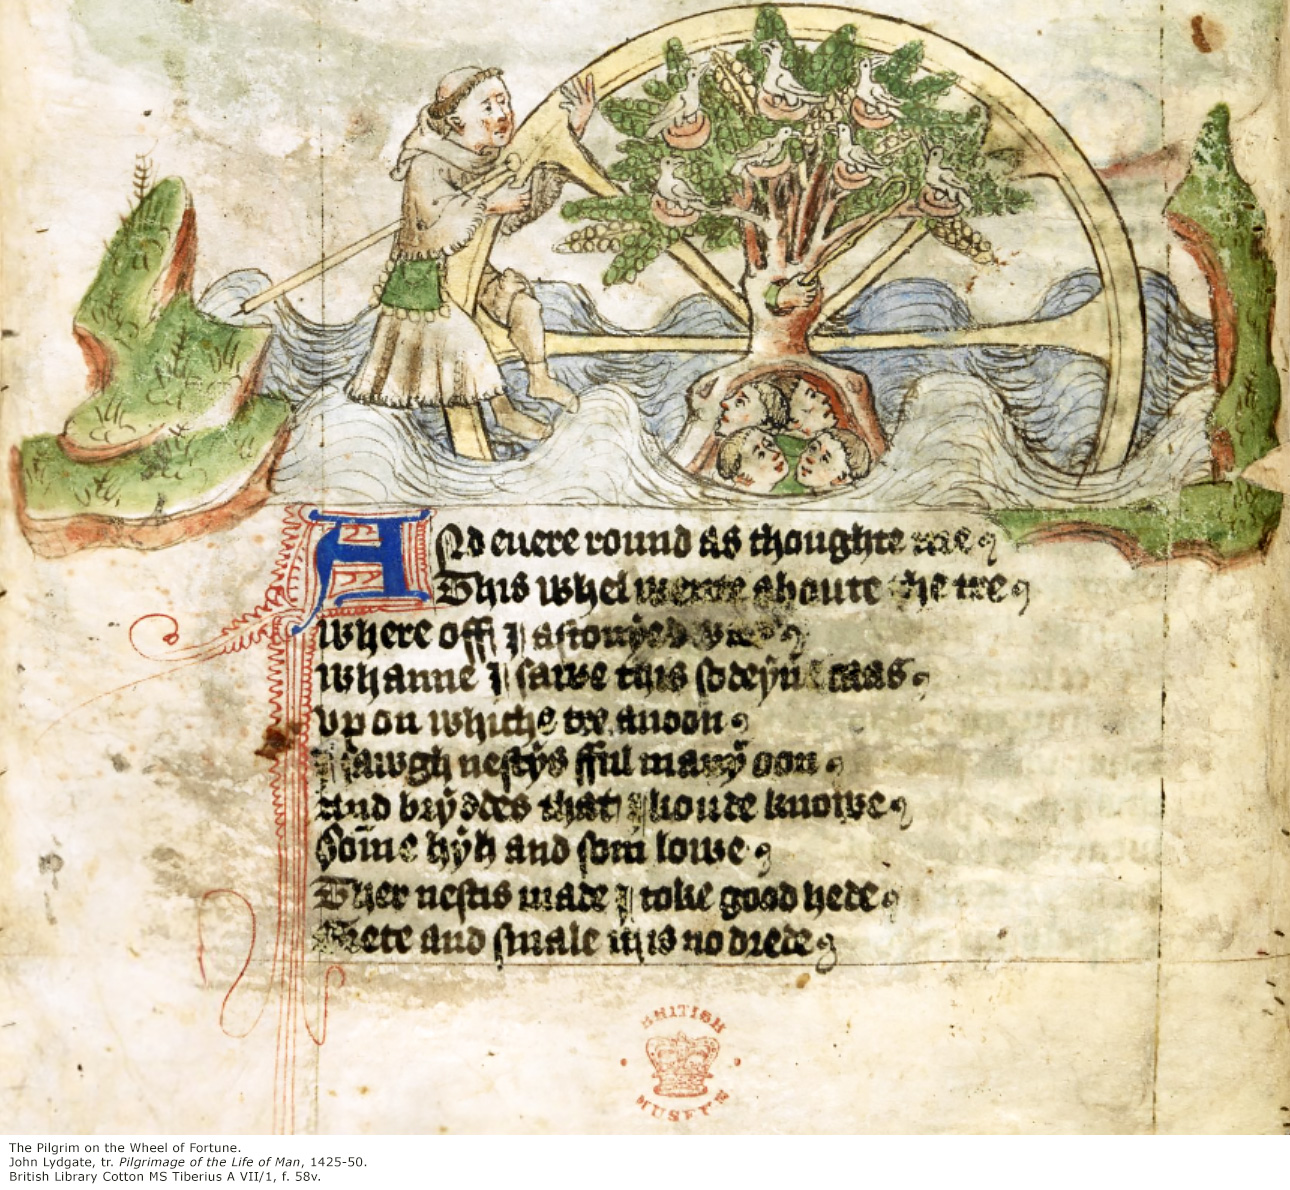 And euere round as thoughte me
This whel wente aboute the tre
Where off I astonyed was
Whanne I sawe this sodeyn caas
Vp on whiche tre anoon
I sawgh nestys fful many oon
And bryddes that I koude knowe
Some hyh and som lowe
Ther nestis made I toke good hede
Grete and smale it is no drede
BRITISH
MUSEUM
The Pilgrim on the Wheel of Fortune.
John Lydgate, tr. Pilgrimage of the Life of Man, 1425-50.
British Library Cotton MS Tiberius A VII/1, f. 58v.